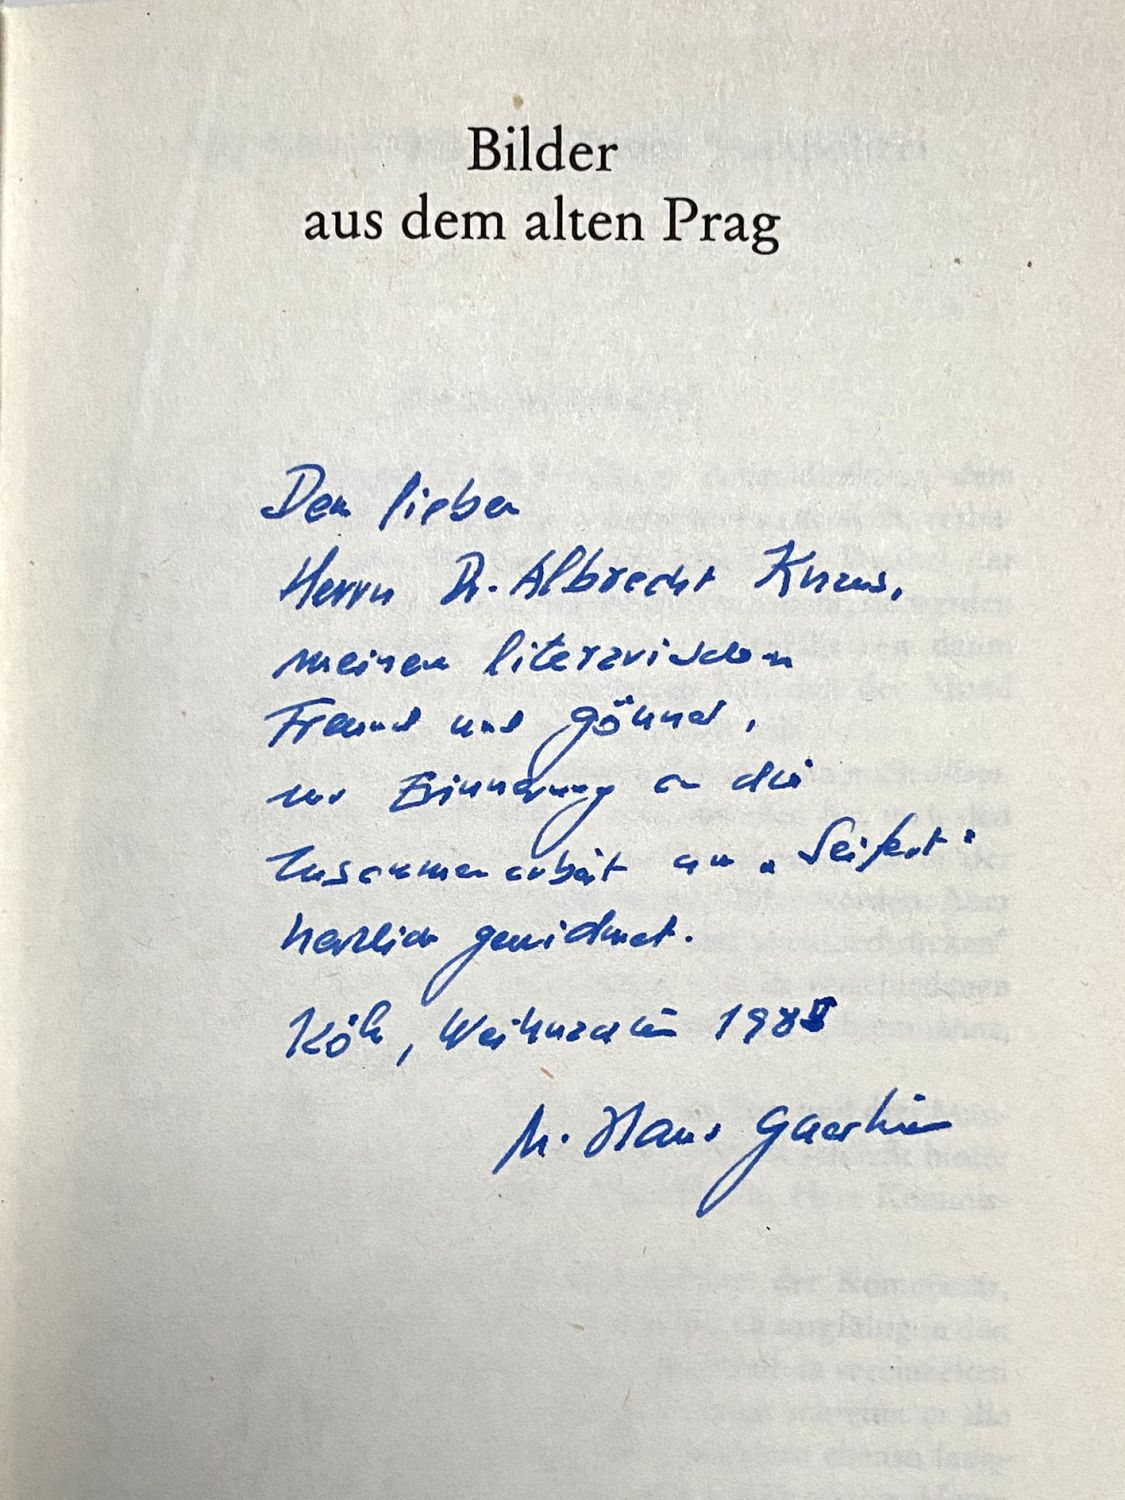 Bilder
aus dem alten Prag
Dem lieben
Herrn Dr. Albrecht Knaus,
meinem literarischen
Freund und Gönner,
zur Erinnerung an die
Zusammenarbeit am „Seifert"
herzlich gewidmet.
Köln, Weihnachten 198
Hans Gaertner